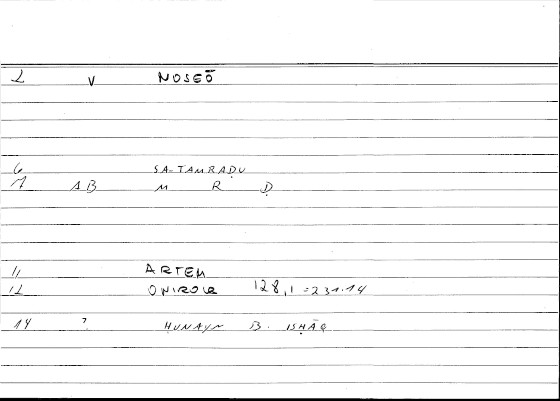 2 V NOSEŌ
6 SA-TAMRADU
7 AB M R Ḍ
11 ARTEM
12 ONIROCR 128,1 = 231.14
14 ? ḤUNAYN B. ISḤĀQ